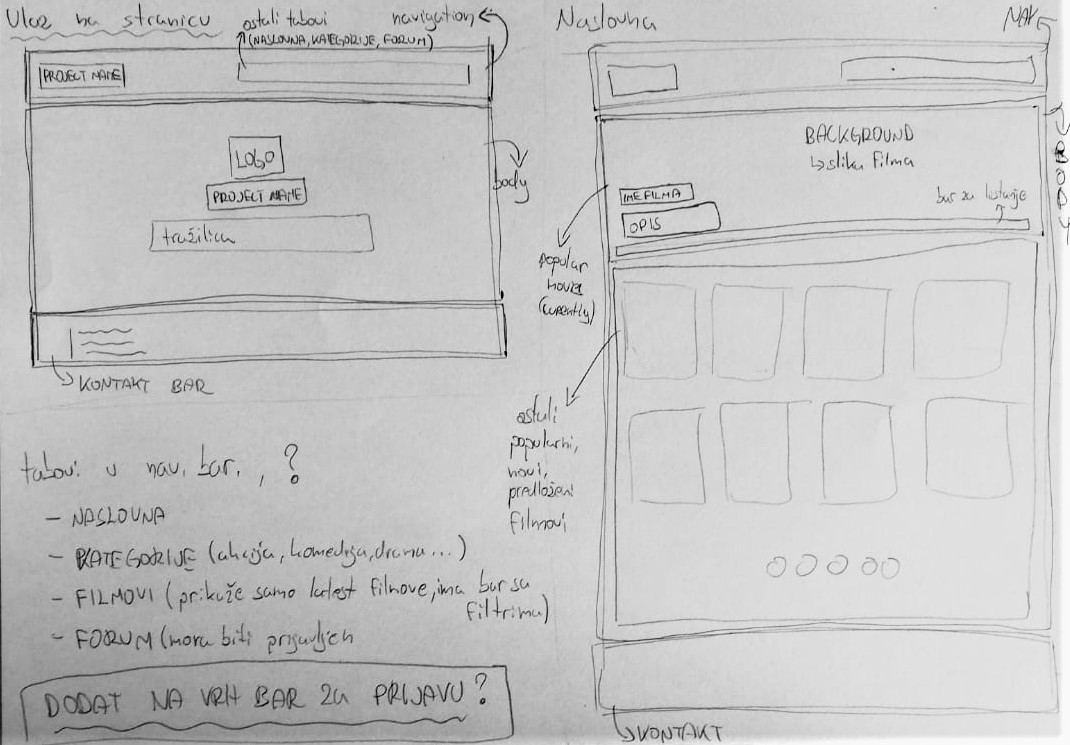 Ulaz na stranicu
ostali tabovi
(NASLOVNA, KATEGORIJE, FORUM)
navigation
PROJECT NAME
LOGO
PROJECT NAME
tražilica
body
KONTAKT BAR
tabovi u nav. bar., ?
- NASLOVNA
- KATEGORIJE (akcija, komedija, drama...)
- FILMOVI (prikaže samo latest filmove, ima bar sa
filtrima)
- FORUM (mora biti prijavljen
DODAT NA VRH BAR za PRIJAVU?
Naslovna
NAV
BACKGROUND
↳ slika filma
IME FILMA
OPIS
bar za listanje
BODY
popular
(curently)
ostali
popularni,
novi,
predloženi
filmovi
KONTAKT